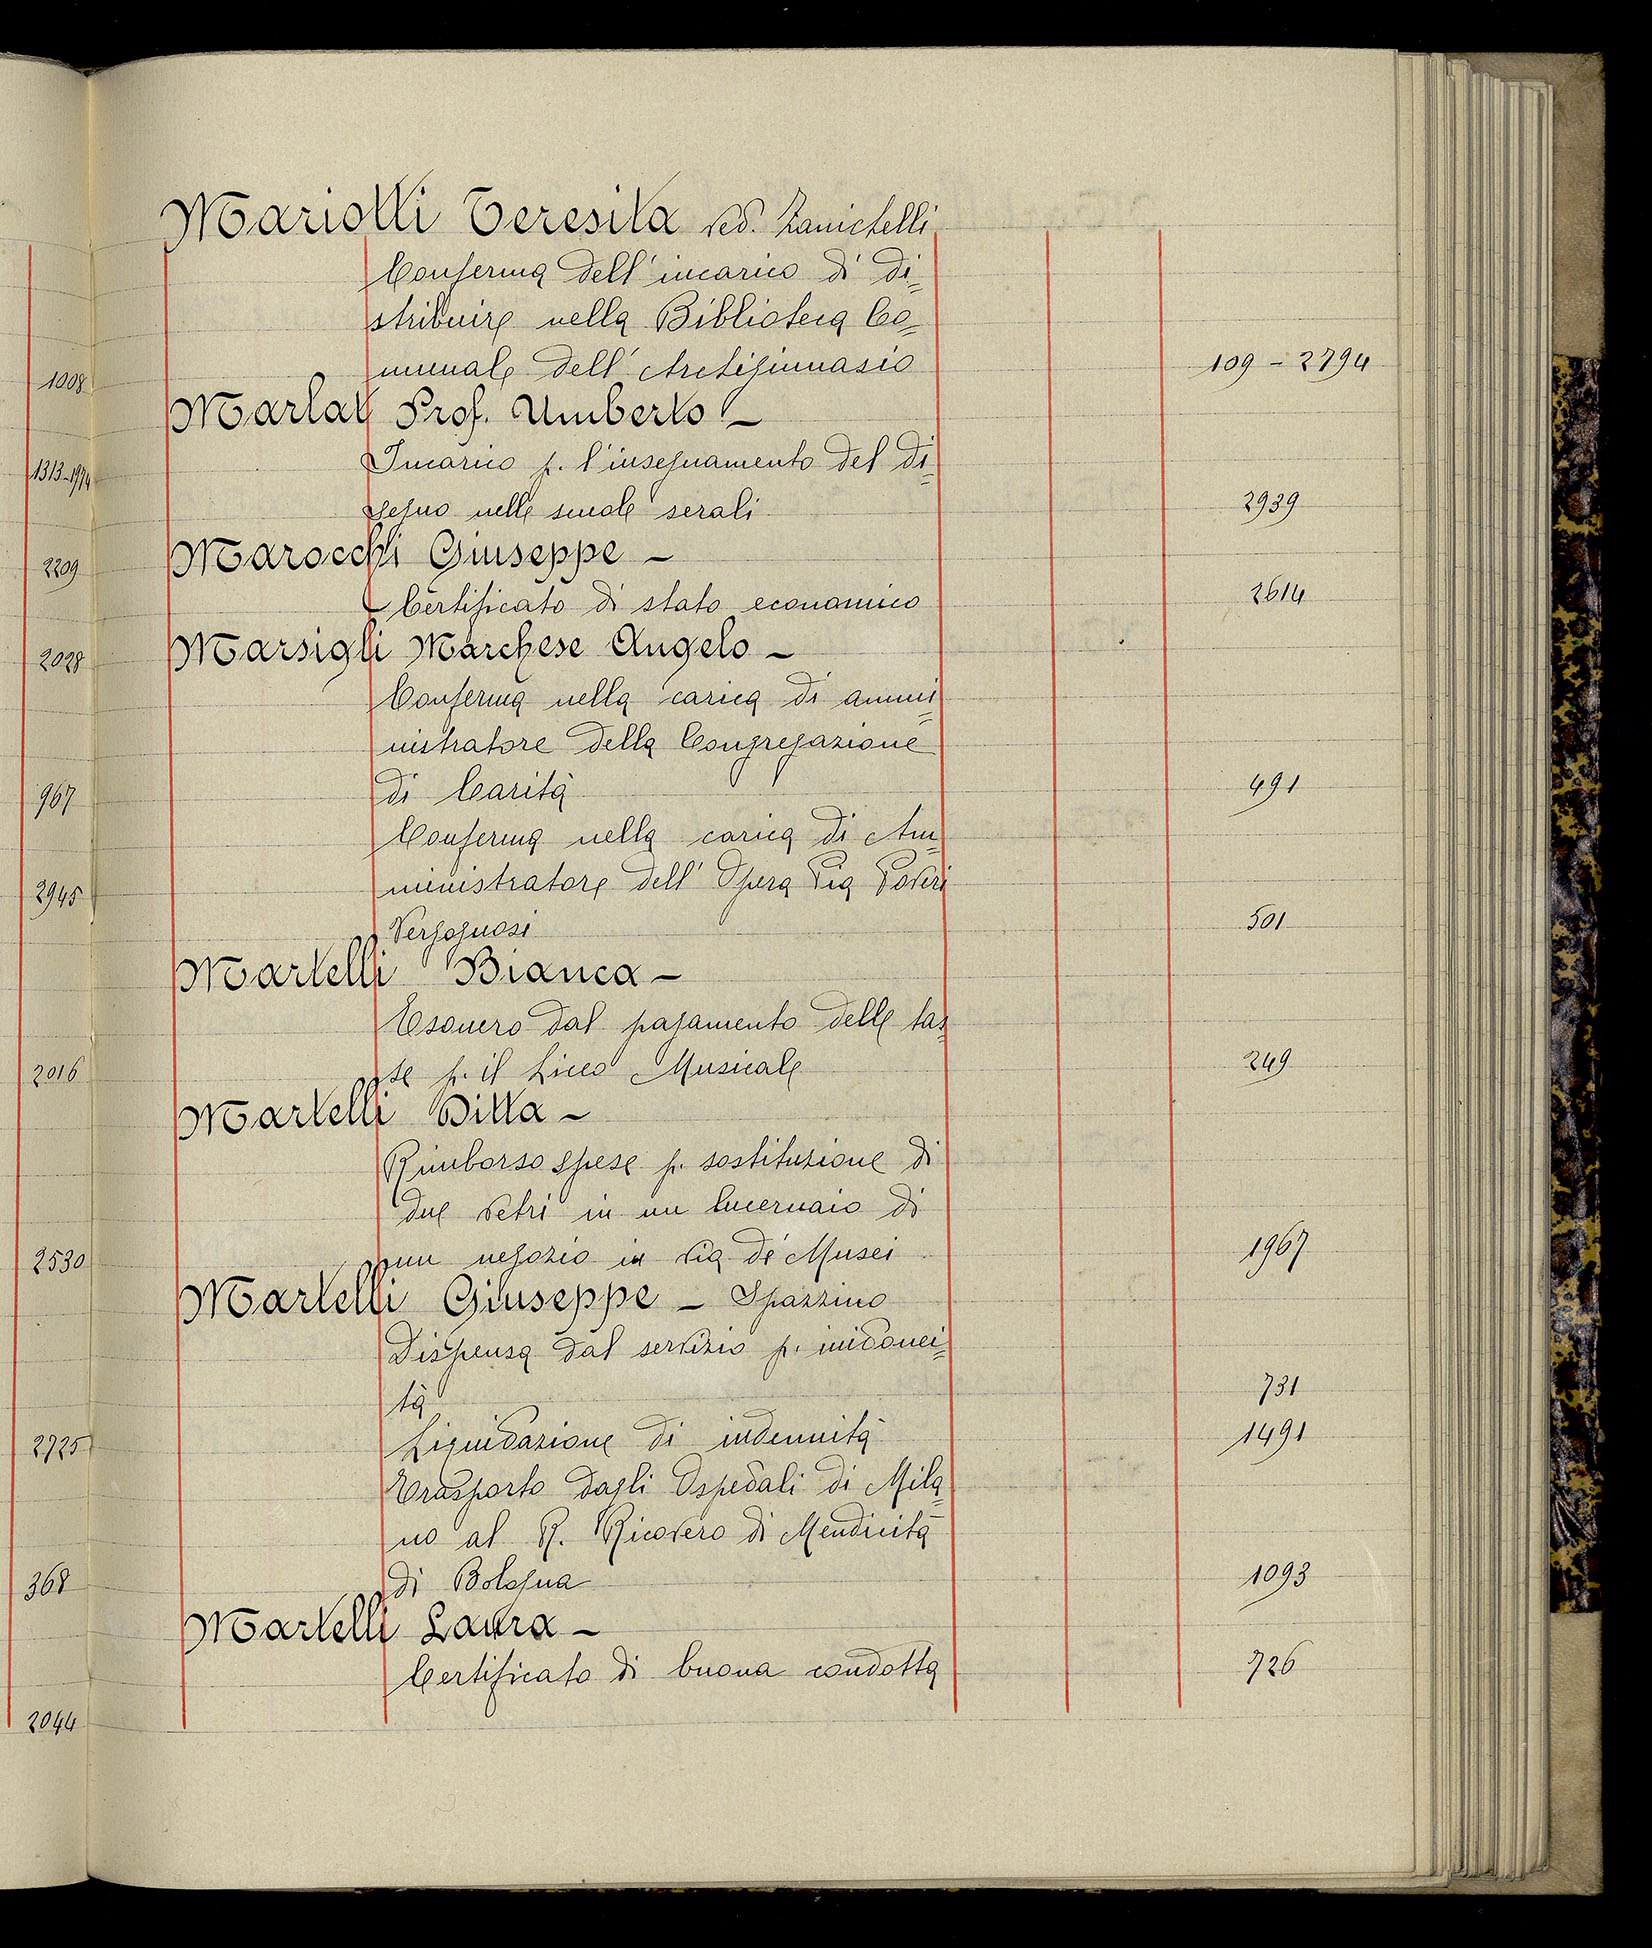 Mariotti Teresita ved. Zanichelli
Conferma dell'incarico di di=
stribuire nella Biblioteca Co=
munale dell'Archiginnasio 109 - 2794
Marlat Prof. Umberto -
Incarico p. l'insegnamento del di=
segno nelle scuole serali 2939
Marocchi Giuseppe -
Certificato di stato economico 2614
Marsigli Marchese Angelo -
Conferma nella carica di ammi=
nistratore della Congregazione
di Carità 491
Conferma nella carica di Am=
ministratore dell'Opera Pia Poveri
Vergognosi 501
Martelli Bianca -
Esonero dal pagamento delle tas=
se p. il Liceo Musicale 249
Martelli Ditta -
Rimborso spese p. sostituzione di
due vetri in un lucernaio di
un negozio in via de' Musei 1967
Martelli Giuseppe - Spazzino
Dispensa dal servizio p. inidonei=
tà 731
Liquidazione di indennità 1491
Trasporto dagli Ospedali di Mila=
no al R. Ricovero di Mendicità
di Bologna 1093
Martelli Laura -
Certificato di buona condotta 726
1008
1313-1974
2209
2028
967
2945
2016
2530
2725
368
2044